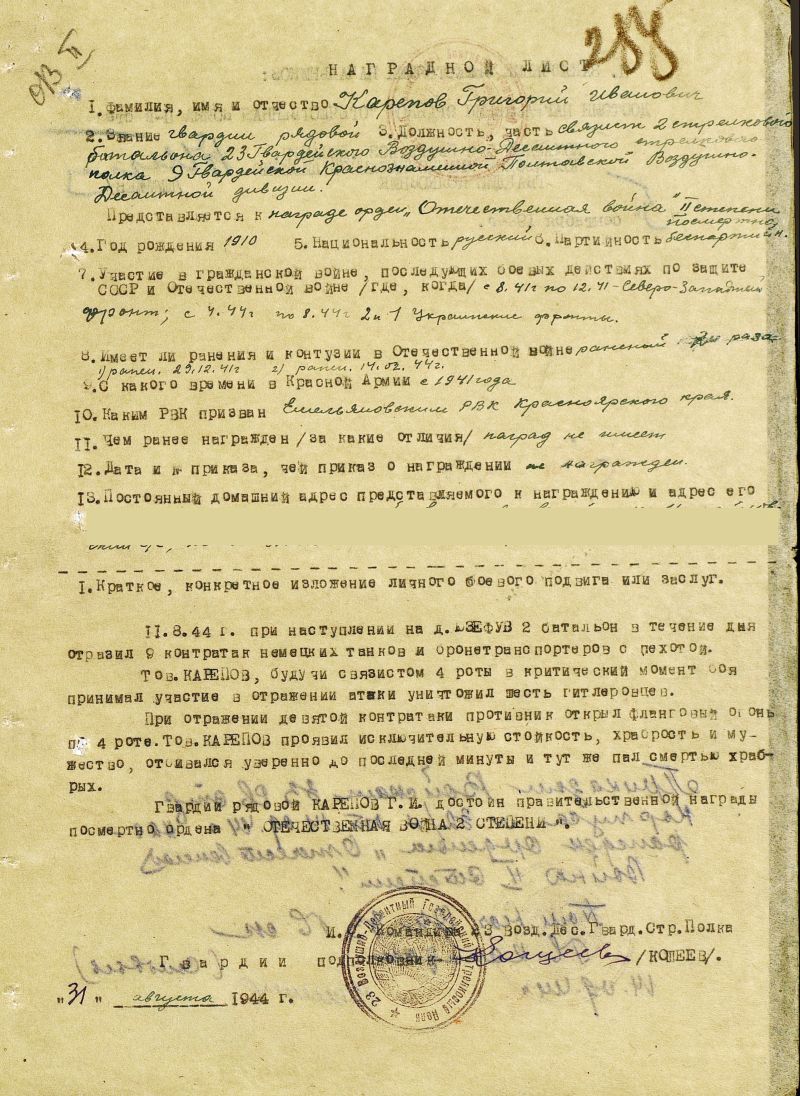 ОВ II
287
НАГРАДНОЙ ЛИСТ
1. Фамилия, имя и отчество Карепов Григорий Иванович
2. Звание гвардии рядовой 3. Должность, часть связист 2 стрелкового
батальона 23 Гвардейского Воздушно-Десантного стрелкового
полка 9 Гвардейской Краснознаменной Полтавской Воздушно-
Десантной дивизии.
Представляется к награде орден „Отечественная война" II степени
посмертно
4. Год рождения 1910 5. Национальность русский 6. Партийность беспартийн.
7. Участие в гражданской войне, последующих боевых действиях по защите
СССР и Отечественной войне /где, когда/ с 8.41г по 12.41 - Северо-Западный
фронт; с 4.44г по 8.44г 2 и 1 Украинские фронты.
8. Имеет ли ранения и контузии в Отечественной войне раненой 2 раза
1) ранен. 29.12.41г 2) ранен. 14.02.44г.
9. С какого времени в Красной Армии с 1941 года
10. Каким РВК призван Емельяновским РВК Красноярского края.
11. Чем ранее награжден /за какие отличия/ наград не имеет
12. Дата и № приказа, чей приказ о награждении не награжден.
13. Постоянный домашний адрес представляемого к награждению и адрес его
I. Краткое, конкретное изложение личного боевого подвига или заслуг.
11.8.44 г. при наступлении на д. ЮЗЕФУВ 2 батальон в течение дня
отразил 9 контратак немецких танков и бронетранспортеров с пехотой.
Тов. КАРЕПОВ, будучи связистом 4 роты в критический момент боя
принимал участие в отражении атаки уничтожил шесть гитлеровцев.
При отражении девятой контратаки противник открыл фланговый огонь
по 4 роте. Тов. КАРЕПОВ проявил исключительную стойкость, храбрость и му-
жество, отбивался уверенно до последней минуты и тут же пал смертью храб-
рых.
Гвардии рядовой КАРЕПОВ Г.И. достоин правительственной награды
посмертно ордена " ОТЕЧЕСТВЕННАЯ ВОЙНА 2 СТЕПЕНИ ".
И.О. Командира 23 Возд. Дес. Гвард. Стр. Полка
Гвардии подполковник /КОПЕЕВ/.
"31" августа 1944 г.